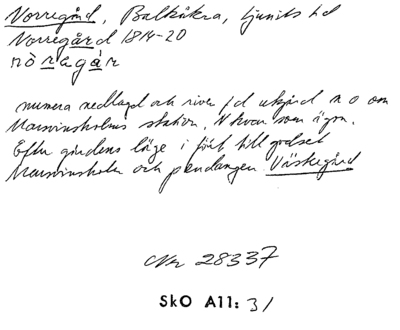 Norregård, Balkåkra, Ljunits hd
Norregård 1814-20
nòragår
numera nedlagd och riven f d utgård n o om
Marsvinsholms station. N kvar som ägon.
Efter gårdens läge i förh till godset
Marsvinsholm och pendangen Västregård
Nr 28337
SkO All: 31